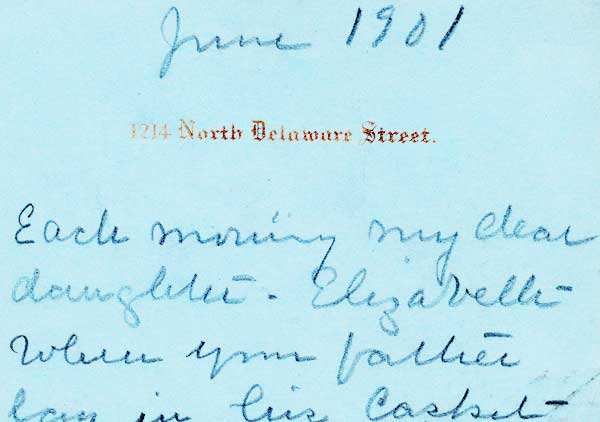 June 1901
1214 North Delaware Street.
Each morning my dear
daughter - Elizabeth
when your father
lay in his Casket